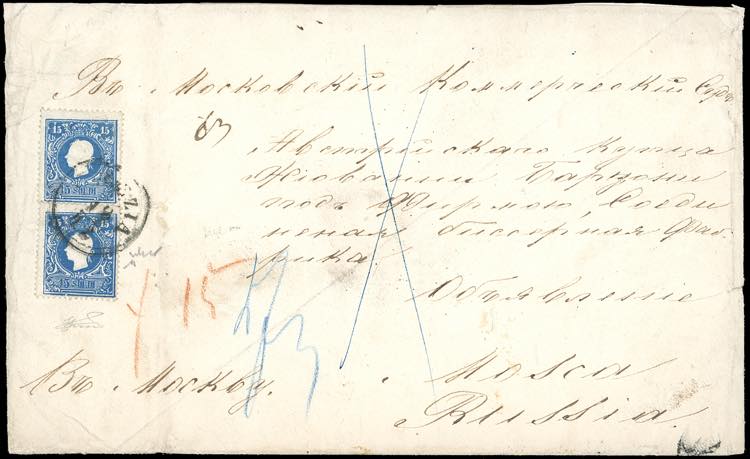 Въ Московскій Коммерческій Судъ
Австрійскаго Купца
Жіованни Барцони
подъ Фирмою, Соеди
неная бисерная Фаб-
рика.
Объявленіе
Въ Москву.
Mosca
Russia.
15 15
15 SOLDI
15 15
15 SOLDI
15